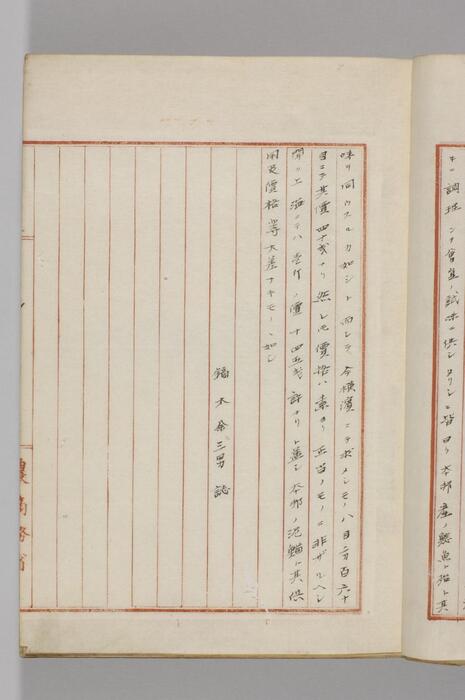 キニ調理シテ會集ノ試味ニ供シタリシニ皆曰ク本邦産ノ懸魚ト殆ト其
味ヲ同ウスルカ如シト而シテ今横濱ニテ求メシモノハ目方百六十
目ニテ其價四十戔ナリ然レ𪜈價格ハ素ヨリ正当ノモノニ非ザルヘシ
聞ク上海ニテハ壱斤ノ價十四五戔許ナリト蓋シ本邦ノ泥鰌ト其供
用及價格等大差ナキモノヽ如シ
鏑木余三男誌
農商務省